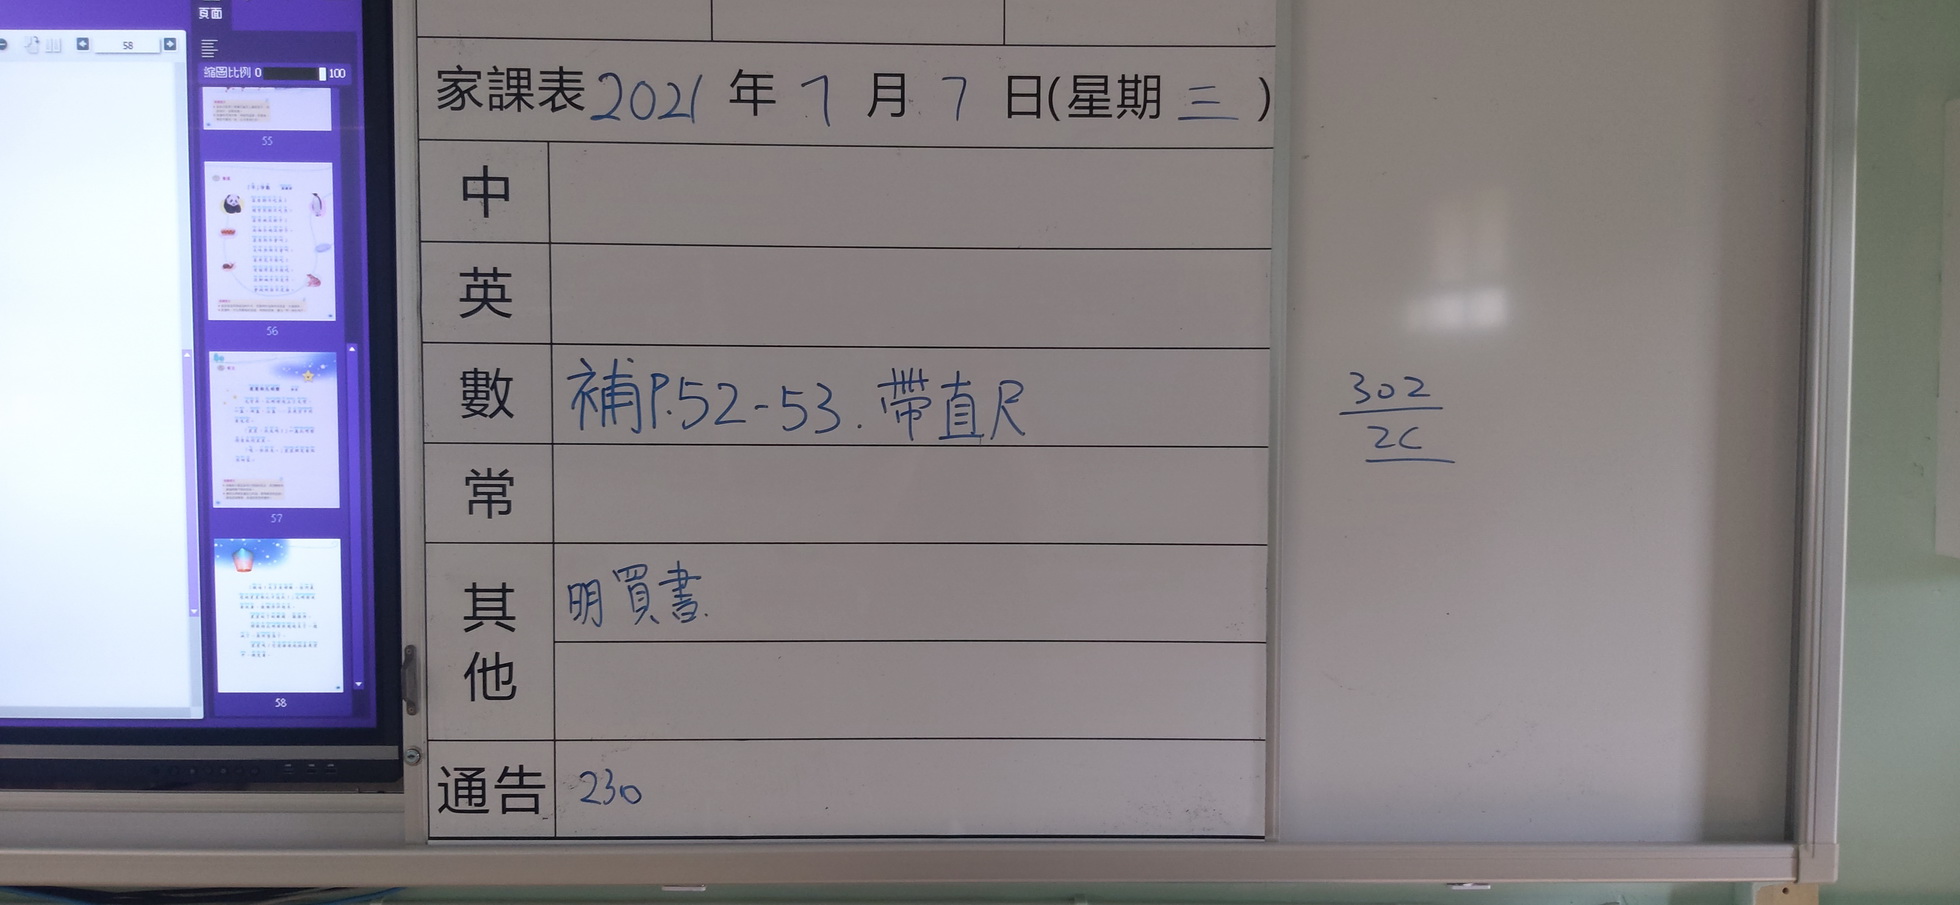 頁面
58
縮圖比例 0 100
55
56
57
58
家課表 2021 年 7 月 7 日(星期 三 )
中
英
數 補P.52-53. 帶直尺
常
其他 明買書.
通告 230
302
2C